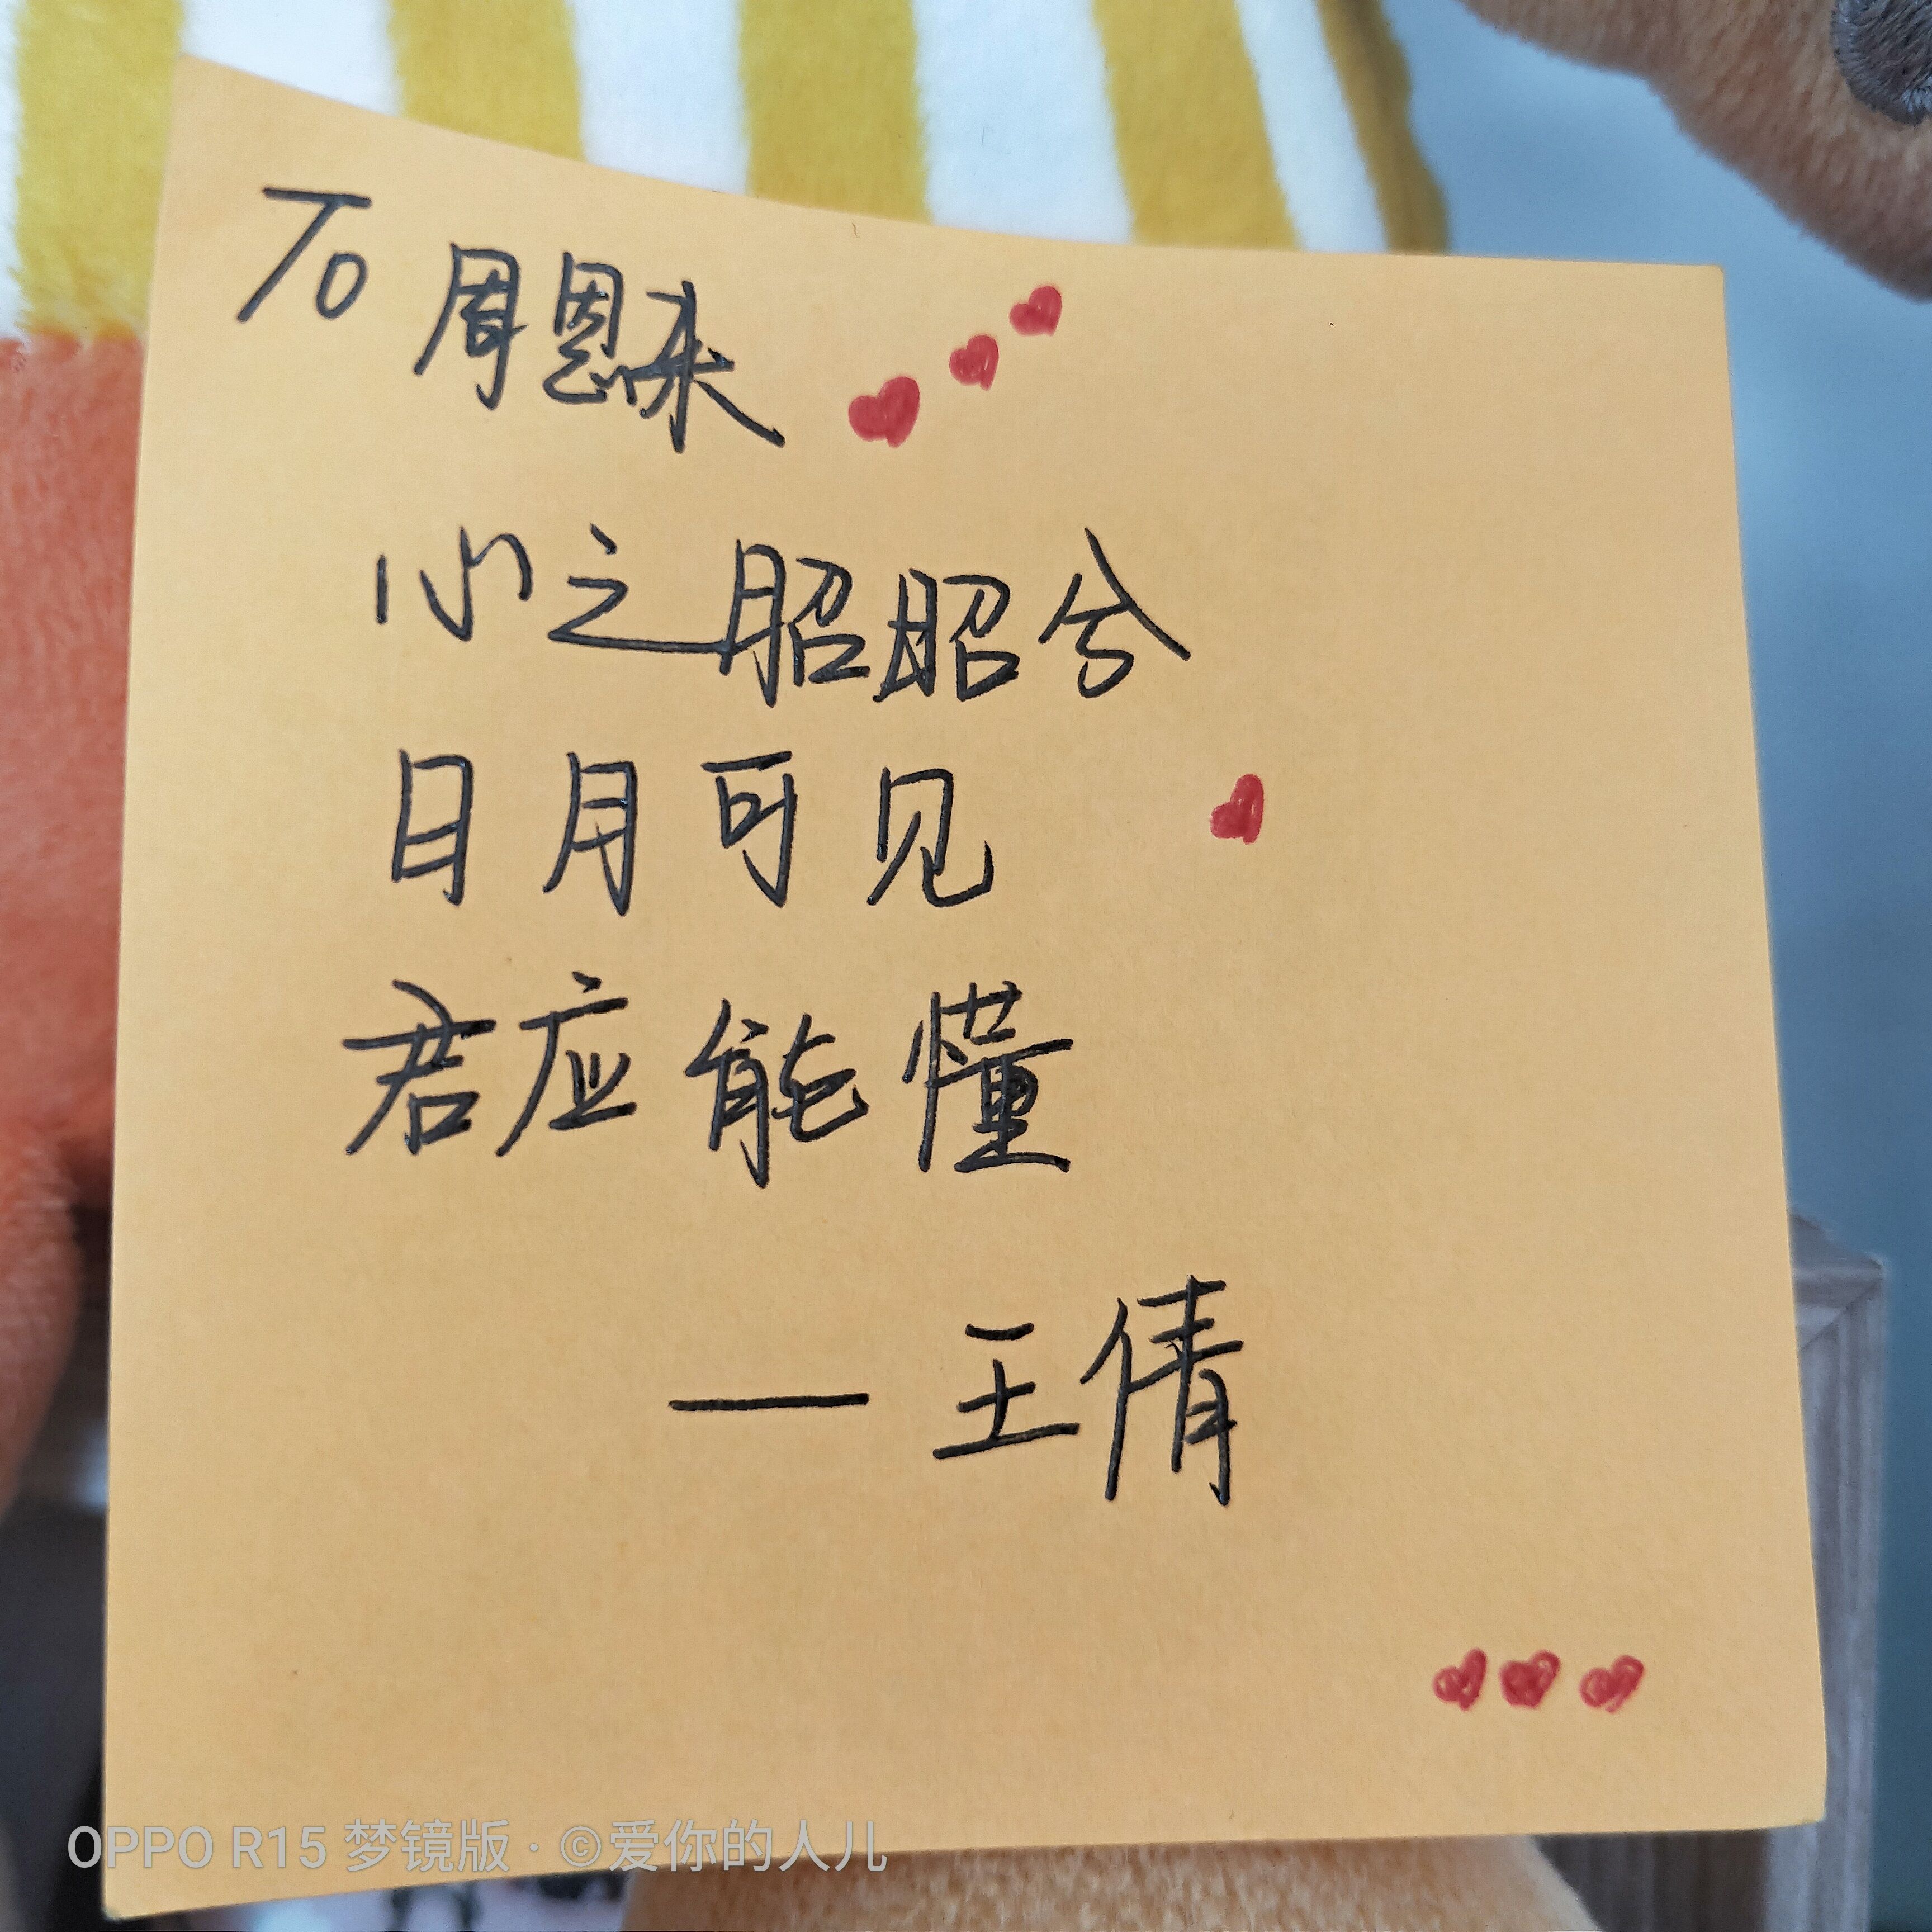 To 周恩来
心之昭昭兮
日月可见
君应能懂
— 王倩
OPPO R15 梦镜版 · ©爱你的人儿